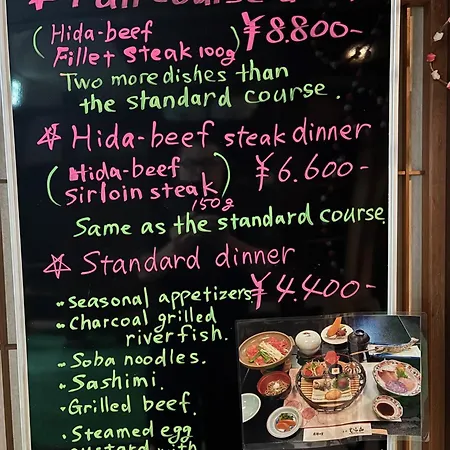 Full course d
(Hida-beef
Fillet steak 100g) ¥8.800-
Two more dishes than
the standard course.
☆ Hida-beef steak dinner
(Hida-beef
Sirloin steak 150g) ¥6.600-
Same as the standard course.
☆ Standard dinner
¥4.400-
・Seasonal appetizers
・Charcoal grilled
river fish.
・Soba noodles.
・Sashimi.
・Grilled beef.
・Steamed egg
custard with